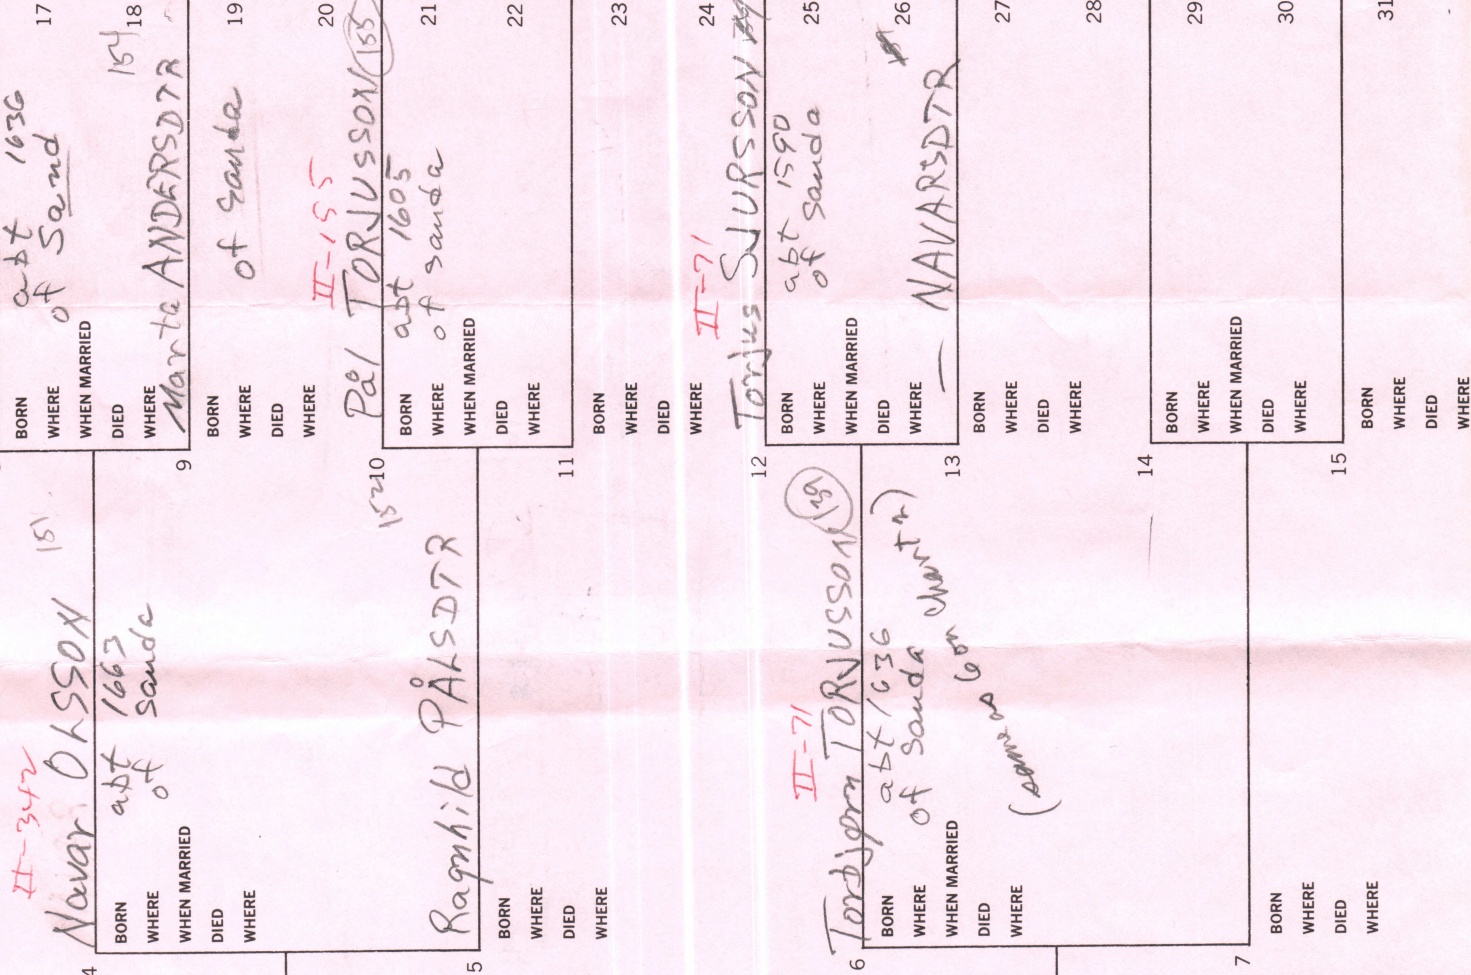 II-342
4 Navar OLSSON 151
BORN abt 1663
WHERE of Sauda
WHEN MARRIED
DIED
WHERE
5 Ragnhild PÅLSDTR 152
BORN
WHERE
DIED
WHERE
II-71
6 Tordjørn TORJUSSON
BORN abt 1636
WHERE of Sauda
WHEN MARRIED
(same as 6 on chart
DIED
WHERE
7
BORN
WHERE
DIED
WHERE
BORN abt 1636
WHERE of Sand
WHEN MARRIED
DIED
WHERE
17
9 Marta ANDERSDTR 154
18
BORN
WHERE of Sauda
DIED
WHERE
19
II-155
10 Pål TORJUSSON 155
20
BORN abt 1605
WHERE of Sauda
WHEN MARRIED
DIED
WHERE
21
11
22
BORN
WHERE
DIED
WHERE
23
II-71
12 Torjus SJURSSON
24
BORN abt 1590
WHERE of Sauda
WHEN MARRIED
DIED
WHERE
25
13 — NAVARSDTR
26
BORN
WHERE
DIED
WHERE
27
14
28
BORN
WHERE
WHEN MARRIED
DIED
WHERE
29
15
30
BORN
WHERE
DIED
WHERE
31